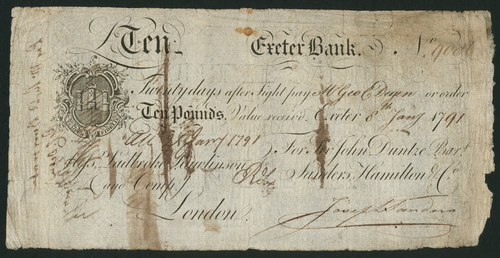 Ten Exeter Bank. No.
Twenty days after Sight pay Mr Geo or order
Ten Pounds. Value received. Exeter 8th Jany 1791
Jany 1791
For Sir John Duntze Bart.
Messrs. Ladbroke Rawlinson
Sanders, Hamilton & Co.
and Comp.
London.
Joseph Sanders